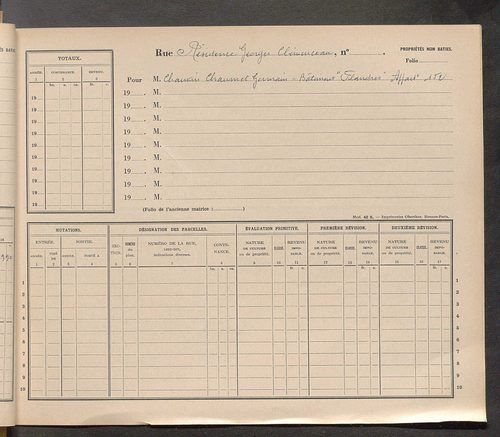 Rue Résidence Georges Clémenceau, n°
PROPRIÉTÉS NON BATIES.
Folio
TOTAUX.
ANNÉE. CONTENANCE. REVENU.
1 2 3
ha. a. ca. fr. c.
Pour M. Chauvin Germain - Bâtiment "Flandres"
19 M.
19 M.
19 M.
19 M.
19 M.
19 M.
19 M.
19 M.
19 M.
(Folio de l'ancienne matrice : )
Mod. 42 R. — Imprimeries Oberthur, Rennes-Paris.
MUTATIONS. DÉSIGNATION DES PARCELLES. ÉVALUATION PRIMITIVE. PREMIÈRE RÉVISION. DEUXIÈME RÉVISION.
ENTRÉE. SORTIE. SECTION. NUMÉRO du plan. NUMÉRO DE LA RUE, LIEU-DIT, indications diverses. CONTENANCE. NATURE DE CULTURE ou de propriété. CLASSE. REVENU IMPOSABLE. NATURE DE CULTURE ou de propriété. CLASSE. REVENU IMPOSABLE. NATURE DE CULTURE ou de propriété. CLASSE. REVENU IMPOSABLE.
ANNÉE. TIRÉ DE ANNÉE. PORTÉ A
1 2 3 4 5 6 7 8 9 10 11 12 13 14 15 16 17
ha. a. ca. fr. c. fr. c. fr. c.
1 1
2 2
3 3
4 4
5 5
6 6
7 7
8 8
9 9
10 10